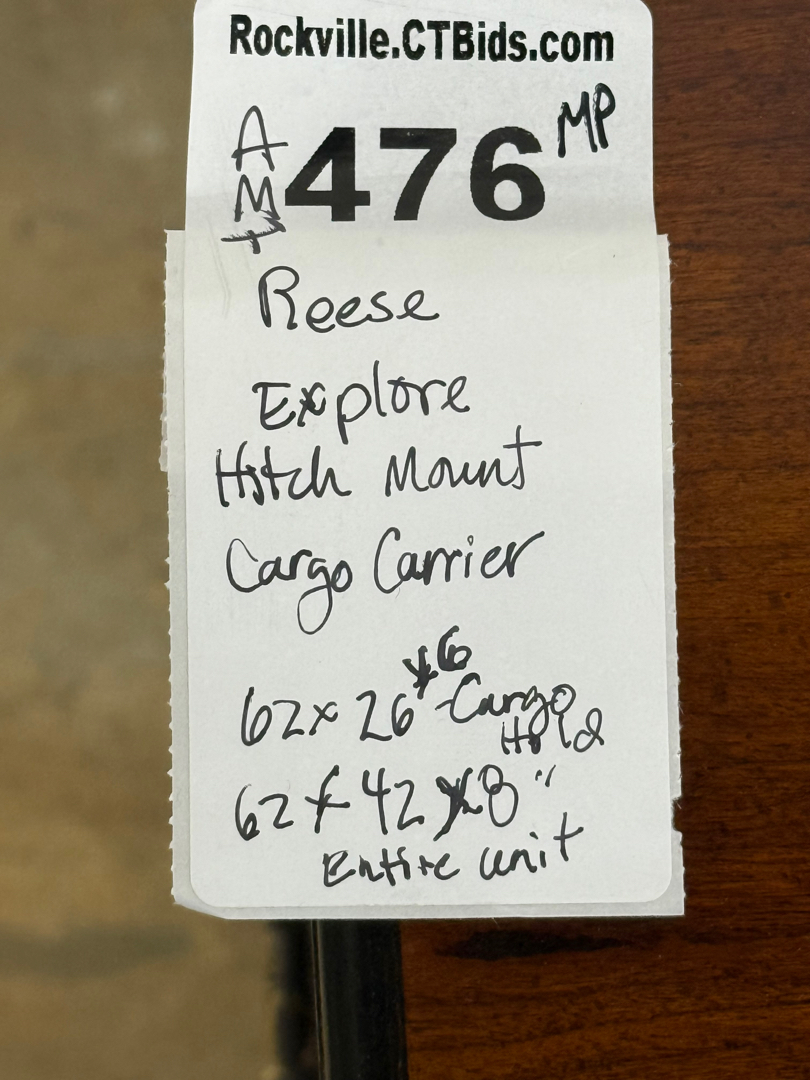 Rockville.CTBids.com
AMT 476 MP
Reese
Explore
Hitch Mount
Cargo Carrier
62 x 26 x 6 - Cargo Hold
62 x 42 x 8"
Entire unit